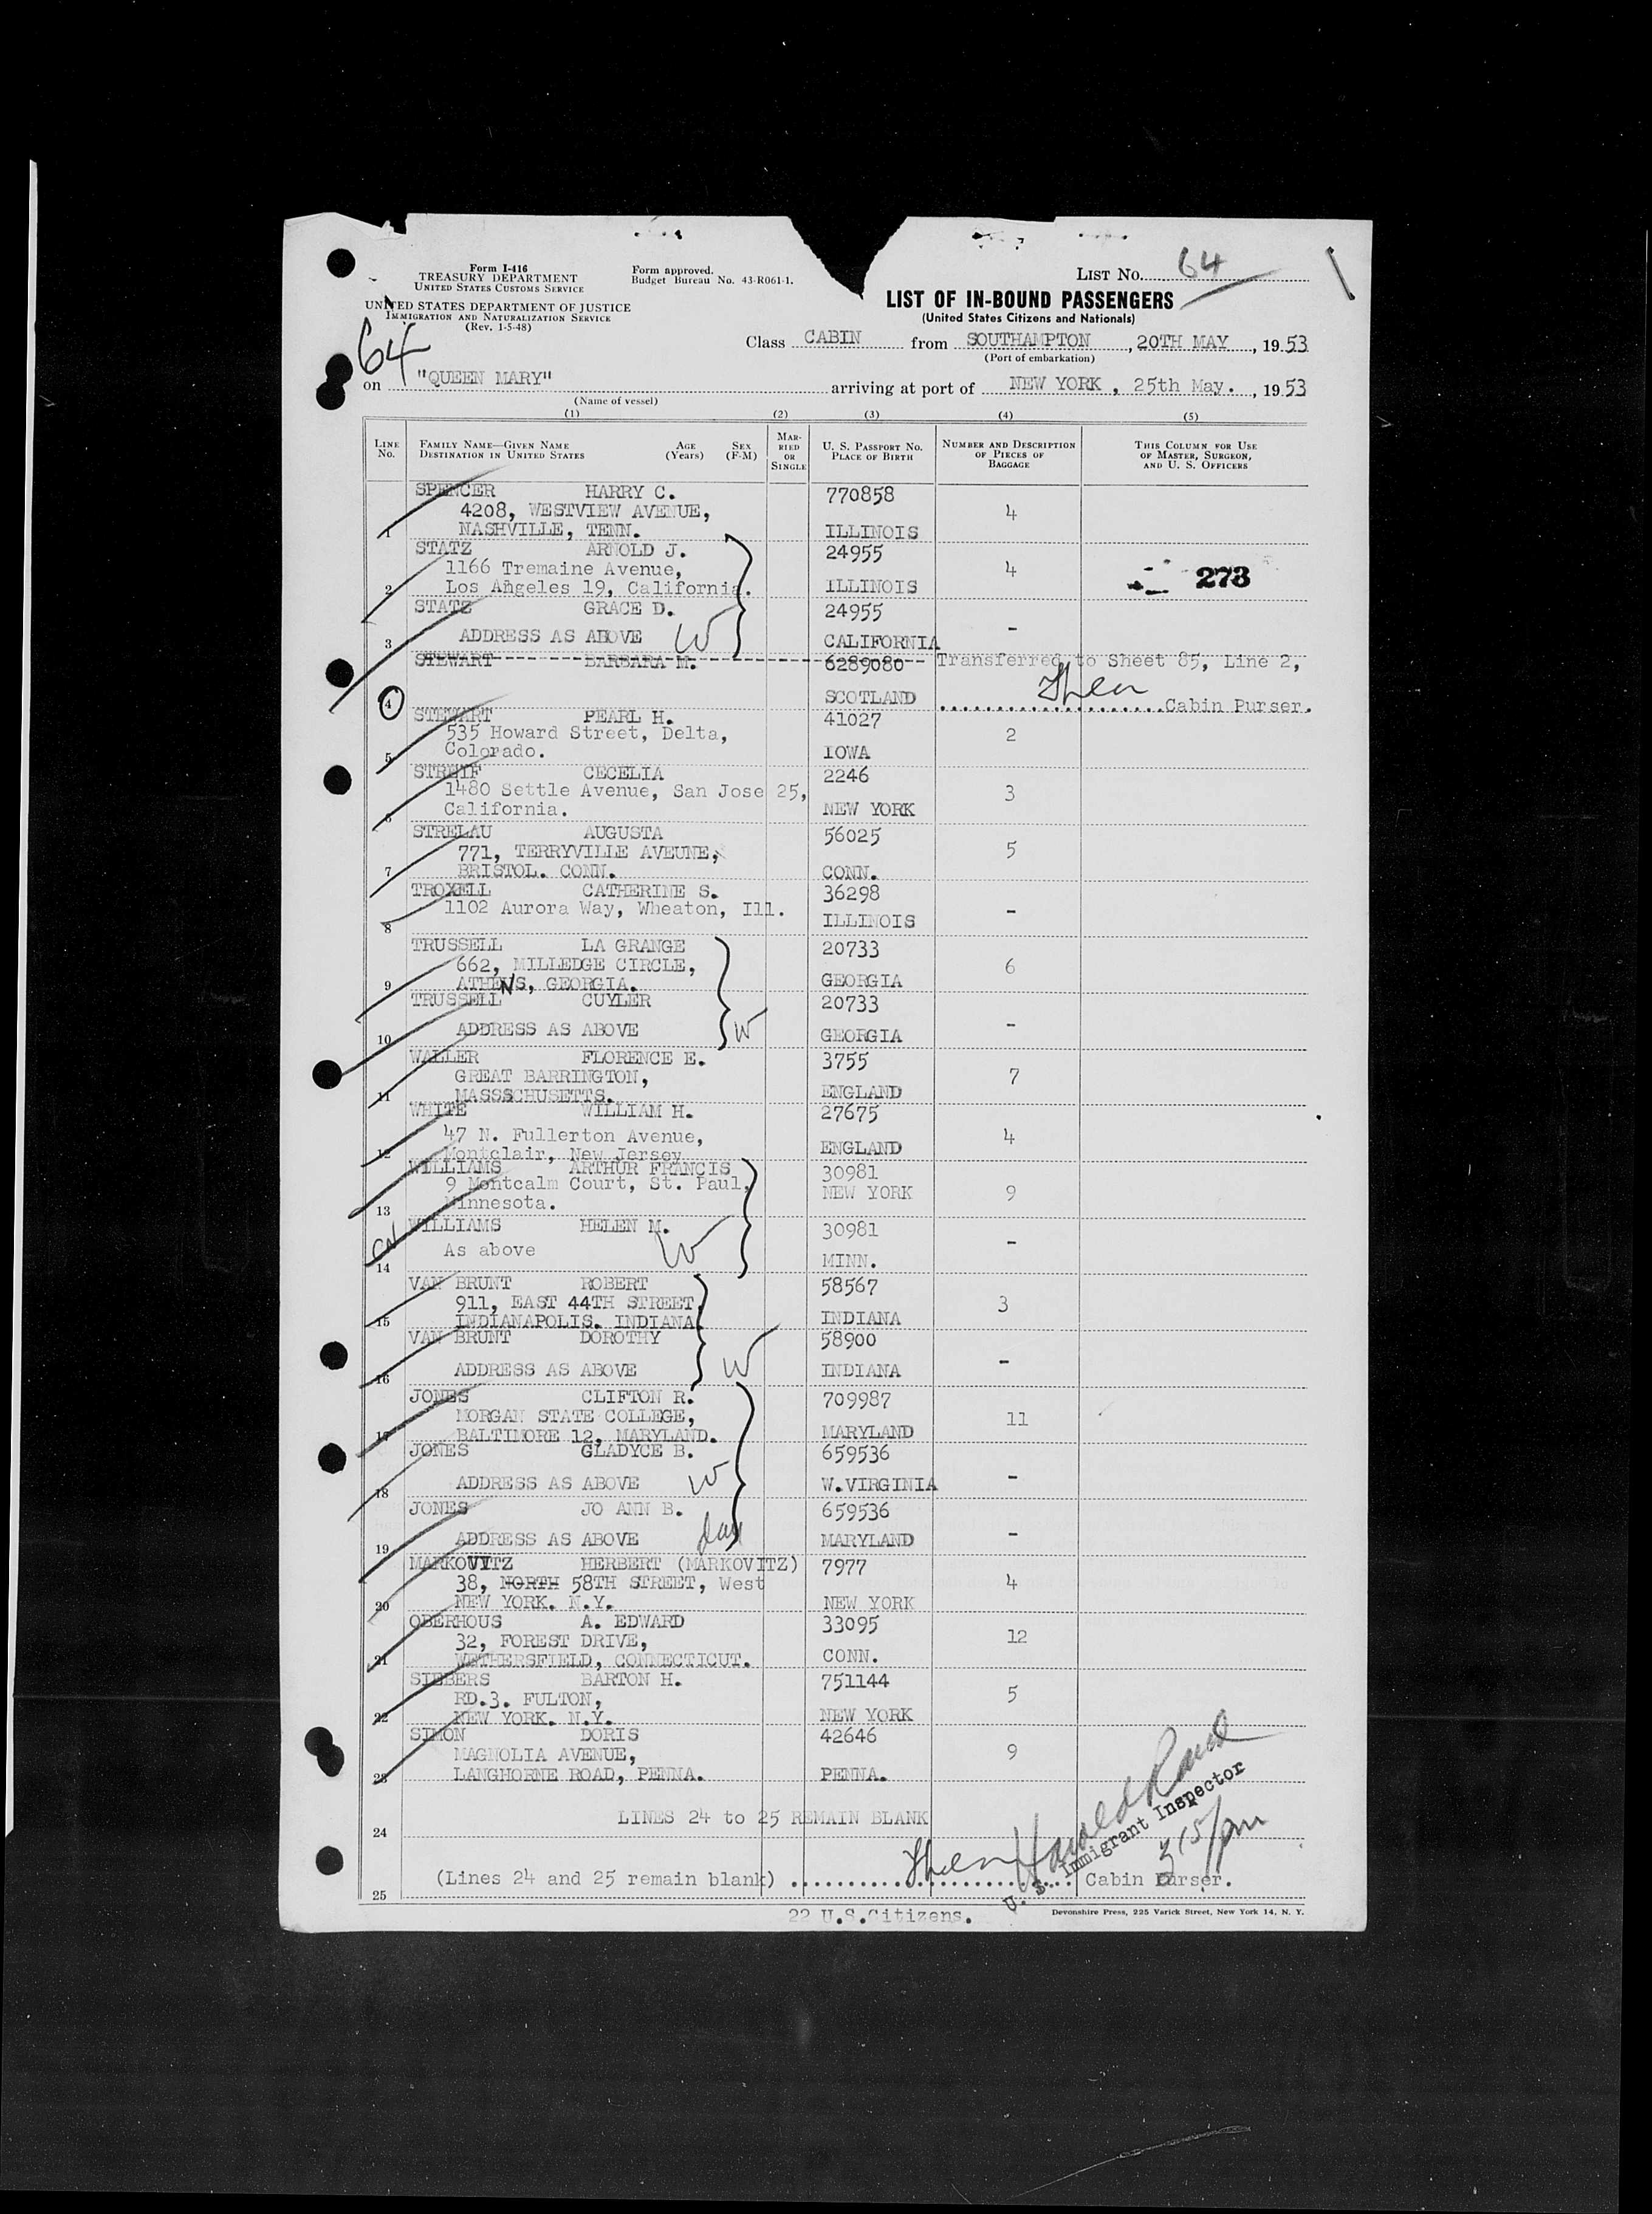 Form I-416
TREASURY DEPARTMENT
UNITED STATES CUSTOMS SERVICE
UNITED STATES DEPARTMENT OF JUSTICE
IMMIGRATION AND NATURALIZATION SERVICE
(Rev. 1-5-48)
Form approved.
Budget Bureau No. 43-R061-1.
LIST NO. 64
LIST OF IN-BOUND PASSENGERS
(United States Citizens and Nationals)
64
Class CABIN from SOUTHAMPTON, 20TH MAY, 1953
(Port of embarkation)
on "QUEEN MARY" arriving at port of NEW YORK, 25th May., 1953
(Name of vessel)
(1) (2) (3) (4) (5)
LINE NO. FAMILY NAME—GIVEN NAME DESTINATION IN UNITED STATES AGE (Years) SEX (F-M) MARRIED OR SINGLE U. S. PASSPORT NO. PLACE OF BIRTH NUMBER AND DESCRIPTION OF PIECES OF BAGGAGE THIS COLUMN FOR USE OF MASTER, SURGEON, AND U. S. OFFICERS
SPENCER HARRY C. 770858
4208, WESTVIEW AVENUE, 4
1 NASHVILLE, TENN. ILLINOIS
STATZ ARNOLD J. 24955
1166 Tremaine Avenue, 4 273
2 Los Angeles 19, California. ILLINOIS
STATZ GRACE D. 24955
3 ADDRESS AS ABOVE W CALIFORNIA -
STEWART BARBARA M. 6289080 Transferred to Sheet 85, Line 2,
4 SCOTLAND Cabin Purser.
STEWART PEARL H. 41027
535 Howard Street, Delta, 2
5 Colorado. IOWA
STREIF CECELIA 2246
1480 Settle Avenue, San Jose 25, 3
6 California. NEW YORK
STRELAU AUGUSTA 56025
771, TERRYVILLE AVEUNE, 5
7 BRISTOL. CONN. CONN.
TROXELL CATHERINE S. 36298
1102 Aurora Way, Wheaton, Ill. -
8 ILLINOIS
TRUSSELL LA GRANGE 20733
662, MILLEDGE CIRCLE, 6
9 ATHENS, GEORGIA. GEORGIA
TRUSSELL CUYLER 20733
10 ADDRESS AS ABOVE W GEORGIA -
WALLER FLORENCE E. 3755
GREAT BARRINGTON, 7
11 MASSSCHUSETTS. ENGLAND
WHITE WILLIAM H. 27675
47 N. Fullerton Avenue, 4
12 Montclair, New Jersey ENGLAND
WILLIAMS ARTHUR FRANCIS 30981
9 Montcalm Court, St. Paul, NEW YORK 9
13 Minnesota.
WILLIAMS HELEN M. 30981
As above W -
14 MINN.
VAN BRUNT ROBERT 58567
911, EAST 44TH STREET, 3
15 INDIANAPOLIS. INDIANA INDIANA
VAN BRUNT DOROTHY 58900
16 ADDRESS AS ABOVE W INDIANA -
JONES CLIFTON R. 709987
MORGAN STATE COLLEGE, 11
17 BALTIMORE 12, MARYLAND. MARYLAND
JONES GLADYCE B. 659536
18 ADDRESS AS ABOVE W W.VIRGINIA -
JONES JO ANN B. 659536
19 ADDRESS AS ABOVE dau MARYLAND -
MARKOVITZ HERBERT (MARKOVITZ) 7977
38, NORTH 58TH STREET, West 4
20 NEW YORK. N.Y. NEW YORK
OBERHOUS A. EDWARD 33095
32, FOREST DRIVE, 12
21 WETHERSFIELD, CONNECTICUT. CONN.
SIBBERS BARTON H. 751144
RD.3. FULTON, 5
22 NEW YORK. N.Y. NEW YORK
SIMON DORIS 42646
MAGNOLIA AVENUE, 9
23 LANGHORNE ROAD, PENNA. PENNA.
LINES 24 to 25 REMAIN BLANK
24
Harold
U. S. Immigrant Inspector
315 pm
(Lines 24 and 25 remain blank) Cabin Purser.
25
22 U.S.Citizens.
Devonshire Press, 225 Varick Street, New York 14, N. Y.